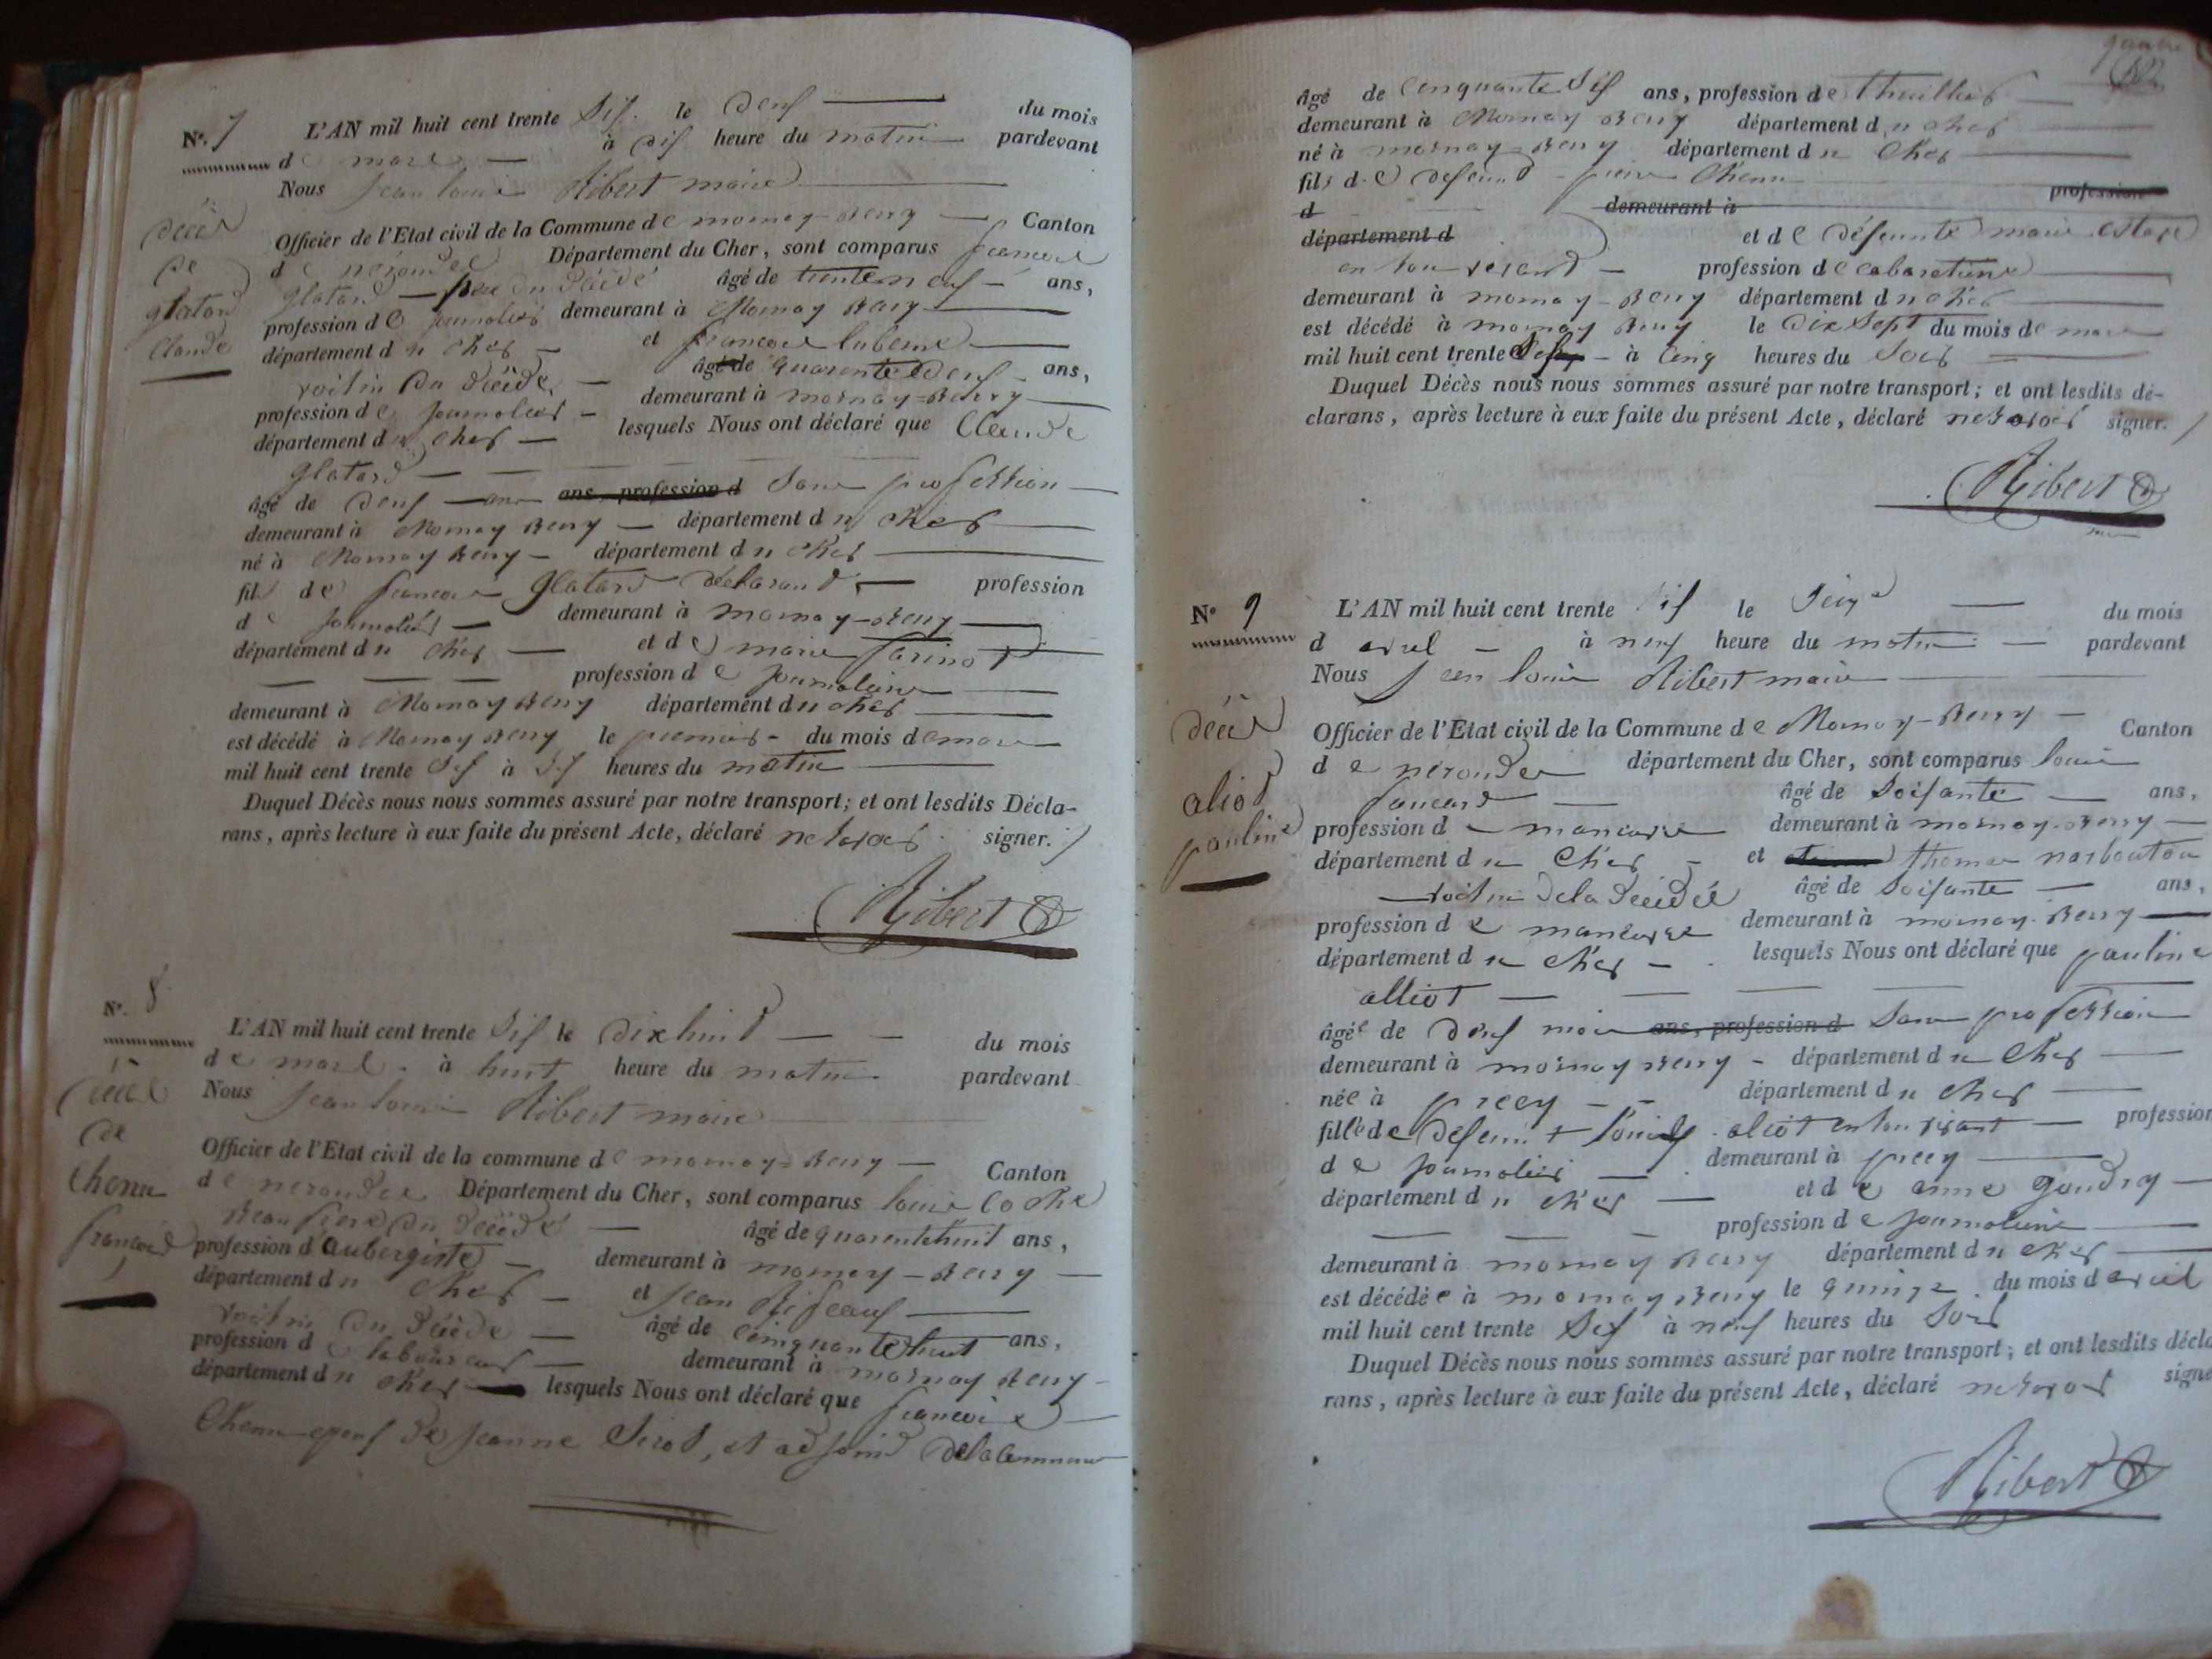 N°. 7
L'AN mil huit cent trente Six. le deux du mois
de mars à dix heure du matin pardevant
Nous Jean louis Ribert maire
décès
de
glatard
Claude
Officier de l'Etat civil de la Commune de mornay-Berry Canton
de nérondes Département du Cher, sont comparus francois
glatard père du décédé âgé de trente neuf ans,
profession de journalier demeurant à Mornay Berry
département du cher et francois
voisin du décédé âgé de quarente deux ans,
profession de journalier demeurant à mornay-Berry
département du cher lesquels Nous ont déclaré que Claude
glatard
âgé de deux ans ans, profession d Sans profession
demeurant à Mornay Berry département du cher
né à Mornay Berry département du cher
fils de francois Glatard déclarant profession
de journalier demeurant à mornay-Berry
département du cher et de marie
profession de journaliere
demeurant à Mornay Berry département du cher
est décédé à Mornay Berry le premier du mois de mars
mil huit cent trente Six à Six heures du matin
Duquel Décès nous nous sommes assuré par notre transport; et ont lesdits Décla-
rans, après lecture à eux faite du présent Acte, déclaré ne savoir signer.
Ribert
N°. 8
L'AN mil huit cent trente Six le dix huit du mois
de mars à huit heure du matin pardevant
Nous Jean louis Ribert maire
décès
de
Chenu
francois
Officier de l'Etat civil de la commune de mornay-Berry Canton
de nerondes Département du Cher, sont comparus louis coché
Beau frere du décédé âgé de quarentehuit ans,
profession d'aubergiste demeurant à mornay-Berry
département du cher et Jean
voisin du décédé âgé de cinquantehuit ans,
profession de laboureur demeurant à mornay Berry
département du cher lesquels Nous ont déclaré que francois
Chenu epoux de Jeanne Sirot, et adjoint de la commune
âgé de cinquante Six ans, profession de thuillier
demeurant à Mornay Berry département du cher
né à mornay-Berry département du Cher
fils de defeunt pierre Chenu profession
d demeurant à
département d et de défeunte marie
en son vivant profession de cabaretiere
demeurant à mornay-Berry département du cher
est décédé à mornay Berry le dix Sept du mois de mars
mil huit cent trente Six à cinq heures du Soir
Duquel Décès nous nous sommes assuré par notre transport; et ont lesdits dé-
clarans, après lecture à eux faite du présent Acte, déclaré ne savoir signer.
Ribert
N° 9
L'AN mil huit cent trente Six le Seize du mois
d avril à neuf heure du matin pardevant
Nous Jean louis Ribert maire
décès
aliot
pauline
Officier de l'Etat civil de la Commune de Mornay-Berry Canton
de nerondes département du Cher, sont comparus louis
âgé de Soixante ans,
profession de manoeuvre demeurant à mornay-Berry
département du Cher et thomas narboutou
voisin de la décédée âgé de Soixante ans,
profession de manoeuvre demeurant à mornay-Berry
département du Cher lesquels Nous ont déclaré que pauline
alliot
âgée de deux mois ans, profession d Sans profession
demeurant à mornay Berry département du Cher
née à precy département du cher
fille de defeunt Louis aliot en son vivant profession
de journalier demeurant à precy
département du cher et de anne gaudry
profession de journaliere
demeurant à mornay Berry département du cher
est décédée à mornay Berry le quinze du mois d avril
mil huit cent trente Six à neuf heures du Soir
Duquel Décès nous nous sommes assuré par notre transport; et ont lesdits décla
rans, après lecture à eux faite du présent Acte, déclaré ne savoir signe
Ribert